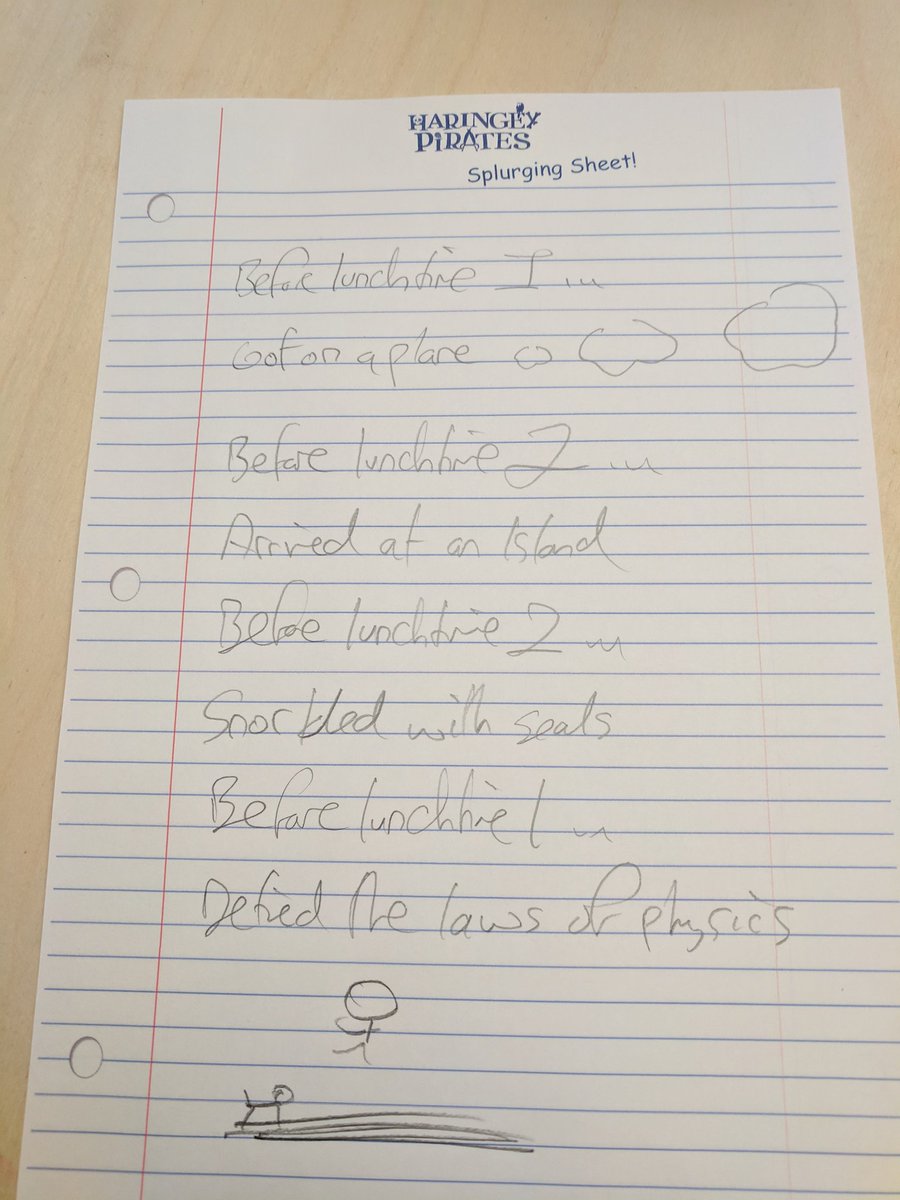 HARINGEY
PIRATES
Splurging Sheet!
Before lunchtime I ...
Got on a plane
Before lunchtime I ...
Arrived at an Island
Before lunchtime I ...
Snorkled with seals
Before lunchtime I ...
Defied the laws of physics